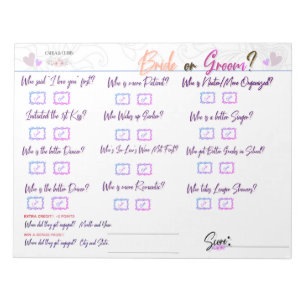 Bride or Groom?
Who said "I love you" first?
Who is more Patient?
Who is Neater/More Organized?
Initiated the 1st Kiss?
Who Wakes up Earlier?
Who is a better Singer?
Who is the better Dancer?
Who's In-Laws Were Met First?
Who got Better Grades in School?
Who is the better Driver?
Who is more Romantic?
Who takes Longer Showers?
EXTRA CREDIT! +2 POINTS
When did they get engaged? Month and Year:
Where did they get engaged? City and State:
Score